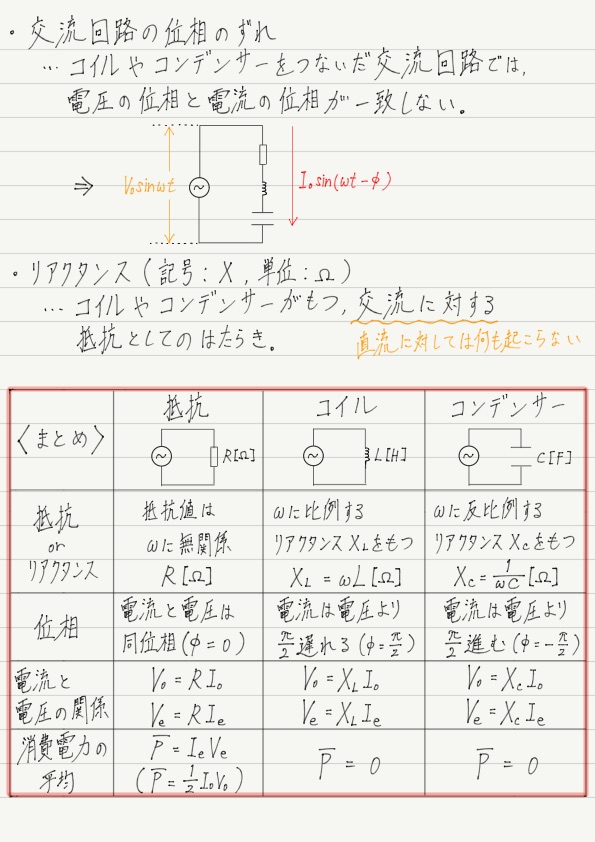 ・交流回路の位相のずれ
… コイルやコンデンサーをつないだ交流回路では,
電圧の位相と電流の位相が一致しない。
⇒ V₀sinωt I₀sin(ωt-φ)
・リアクタンス(記号:X,単位:Ω)
… コイルやコンデンサーがもつ,交流に対する
抵抗としてのはたらき。
直流に対しては何も起こらない
〈まとめ〉 抵抗 コイル コンデンサー
R[Ω] L[H] C[F]
抵抗 or リアクタンス
抵抗値は
ωに無関係
R[Ω]
ωに比例する
リアクタンスX_Lをもつ
X_L = ωL[Ω]
ωに反比例する
リアクタンスX_Cをもつ
X_C = 1/ωC [Ω]
位相
電流と電圧は
同位相(φ=0)
電流は電圧より
π/2遅れる(φ=π/2)
電流は電圧より
π/2進む(φ=-π/2)
電流と
電圧の関係
V₀ = RI₀
Ve = RIe
V₀ = X_L I₀
Ve = X_L Ie
V₀ = X_C I₀
Ve = X_C Ie
消費電力の
平均
P̅ = IeVe
(P̅ = 1/2 I₀V₀)
P̅ = 0
P̅ = 0